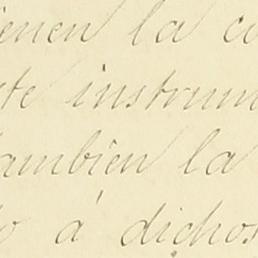 ienen la co
te instrum
tambien la
o á dichos